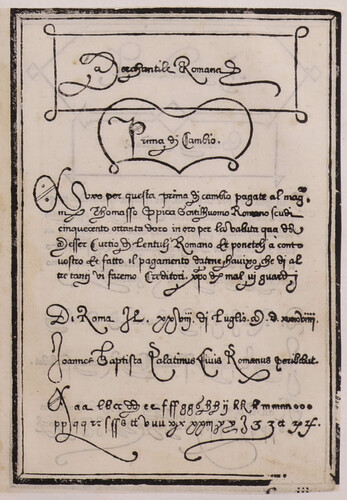 Merchantile Romana
Prima di Cambio.
per questa prima di cambio pagate al mag.co
m Thomasso Gentilhuomo Romano scudi
cinquecento ottanta doro in oro per la valuta qua da
Messer Curtio di Lentuli Romano et ponete a conto
vostro et fatto il pagamento datene havixo che di al
tre tanti vi faremo Creditori. xpo di mal vi guardi
Di Roma di Luglio. M. d.
Joannes Baptista Palatinus Civis Romanus scribebat.
A a a b b c c d d e e f f f g g g h h ij k k k l m m m o o o
p p q q r r s s s t t v u u x x y z